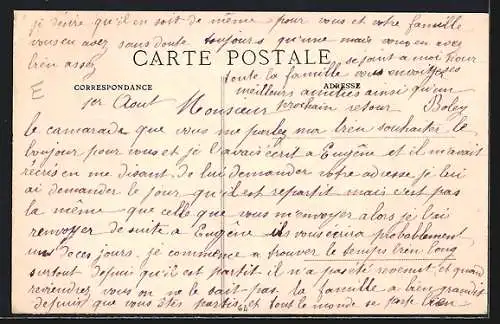 je désire qu'il en soit de même pour vous et votre famille
vous en avez sans doute toujours qu'une mais vous en avez
bien assez
se joint a moi pour
CARTE POSTALE
toute la famille vous envoit ses
meilleurs amitiés ainsi qu'un
CORRESPONDANCE
ADRESSE
prochain retour
E
1er Aout Monsieur
le camarade que vous me parlez ma bien souhaiter le
bonjour pour vous et je l'avais écrit a Eugène et il m'avait
récris en me disant de lui demander votre adresse je lui
ai demander le jour qu'il est repartit mais c'est pas
la même que celle que vous m'envoyer alors je l'ai
renvoyer de suite a Eugène ils vous ecrira probablement
un de ces jours. je commence a trouver le temps bien long
surtout depuis qu'il est partit il n'a pas été revenut et quand
reviendrez vous on ne le sait pas la famille a bien grandit
depuis que vous êtes partis et tout le monde se porte bien
64